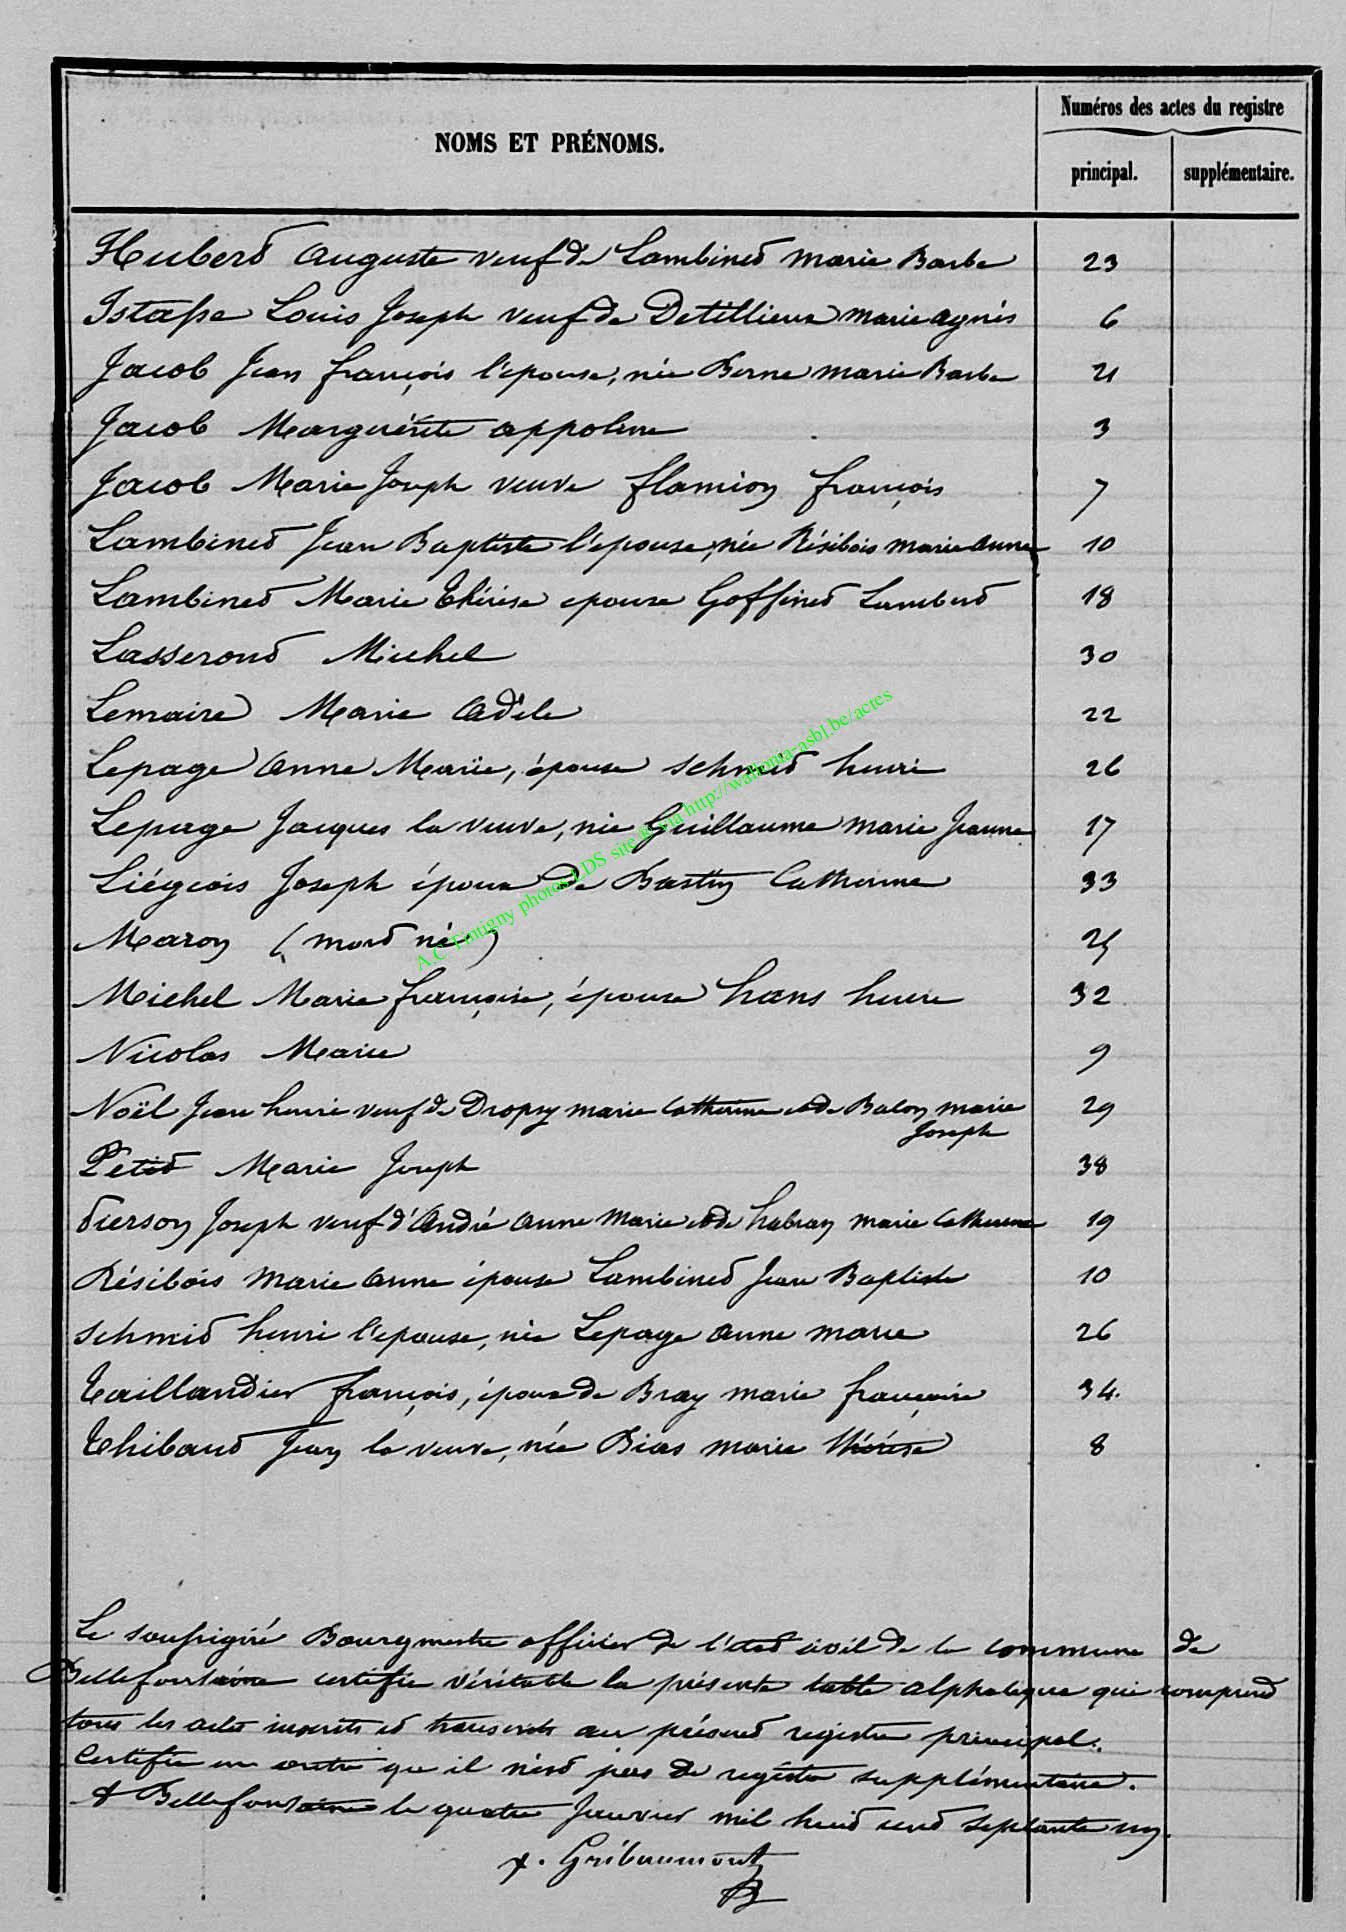 Numéros des actes du registre
NOMS ET PRÉNOMS.
principal. supplémentaire.
Hubert Auguste veuf de Lambinet marie Barbe 23
Istasse Louis Joseph veuf de Detillieux marie agnès 6
Jacob Jean françois l'epouse, née Berne marie Barbe 21
Jacob Marguérite appoline 3
Jacob Marie Joseph veuve flamion françois 7
Lambinet Jean Baptiste l'epouse, née Résibois marie anne 10
Lambinet Marie Thérèse epouse Goffinet Lambert 18
Lasseront Michel 30
Lemaire Marie Adèle 22
Lepage Anne Marie, épouse schmid henri 26
Lepage Jacques la veuve, née Guillaume marie Jeanne 17
Liégeois Joseph époux de Bastin Catherine 33
Maron (mort né) 25
Michel Marie françoise, épouse hans henri 32
Nicolas Marie 9
Noël Jean henri veuf de Dropsy marie Catherine et de Balon marie 29
Joseph
Petit Marie Joseph 38
Pierson Joseph veuf d'André anne marie et de habran marie Catherine 19
Résibois marie anne épouse Lambinet Jean Baptiste 10
schmid henri l'epouse, née Lepage anne marie 26
Taillandier françois, époux de Bray marie françoise 34.
Thibaut Jean la veuve, née Bias marie thérèse 8
Le soussigné Bourgmestre officier de l'état civil de la commune de
Bellefontaine certifie véritable la présente table alphabéque qui comprend
tous les actes inscrits et transcrits au présent registre principal.
Certifie en outre que il n'est pas de registre supplémentaire.
A Bellefontaine le quatre Janvier mil huit cent septante un.
A.C Tintigny photos LDS site ® via http://wallonia-asbl.be/actes